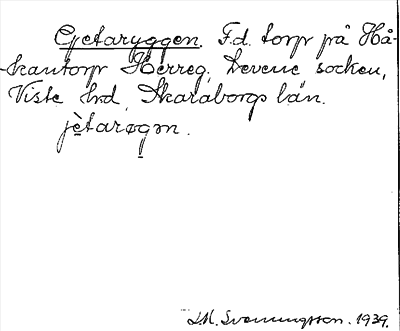 Getaryggen. F.d. torp på Hå-
kantorp Herreg., Levene socken,
Viste hrd, Skaraborgs län.
jètarøgən.
S.M. Svenningsson. 1939.